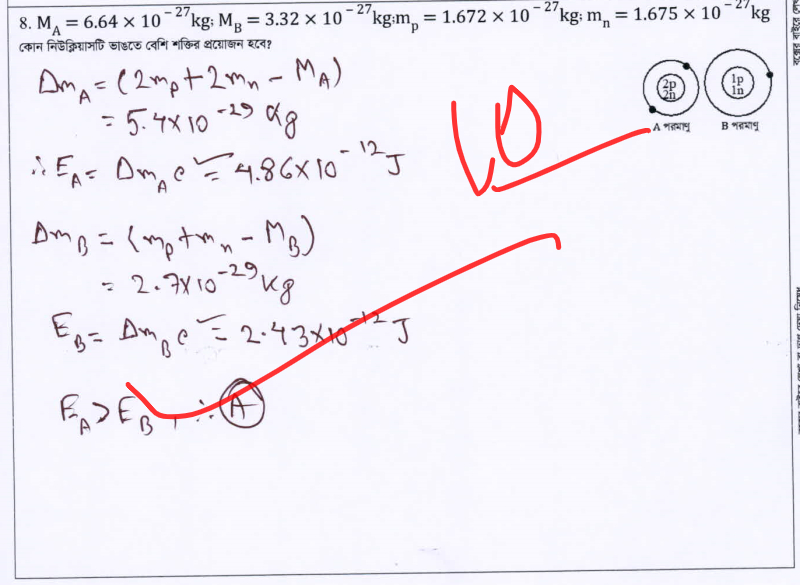 8. M_A = 6.64 × 10^-27 kg; M_B = 3.32 × 10^-27 kg; m_p = 1.672 × 10^-27 kg; m_n = 1.675 × 10^-27 kg
কোন নিউক্লিয়াসটি ভাঙতে বেশি শক্তির প্রয়োজন হবে?
2p
2n
1p
1n
A পরমাণু
B পরমাণু
Δm_A = (2m_p + 2m_n - M_A)
= 5.4×10^-29 kg
∴ E_A = Δm_A c² = 4.86×10^-12 J
Δm_B = (m_p + m_n - M_B)
= 2.7×10^-29 kg
E_B = Δm_B c² = 2.43×10^-12 J
E_A > E_B, ∴ A